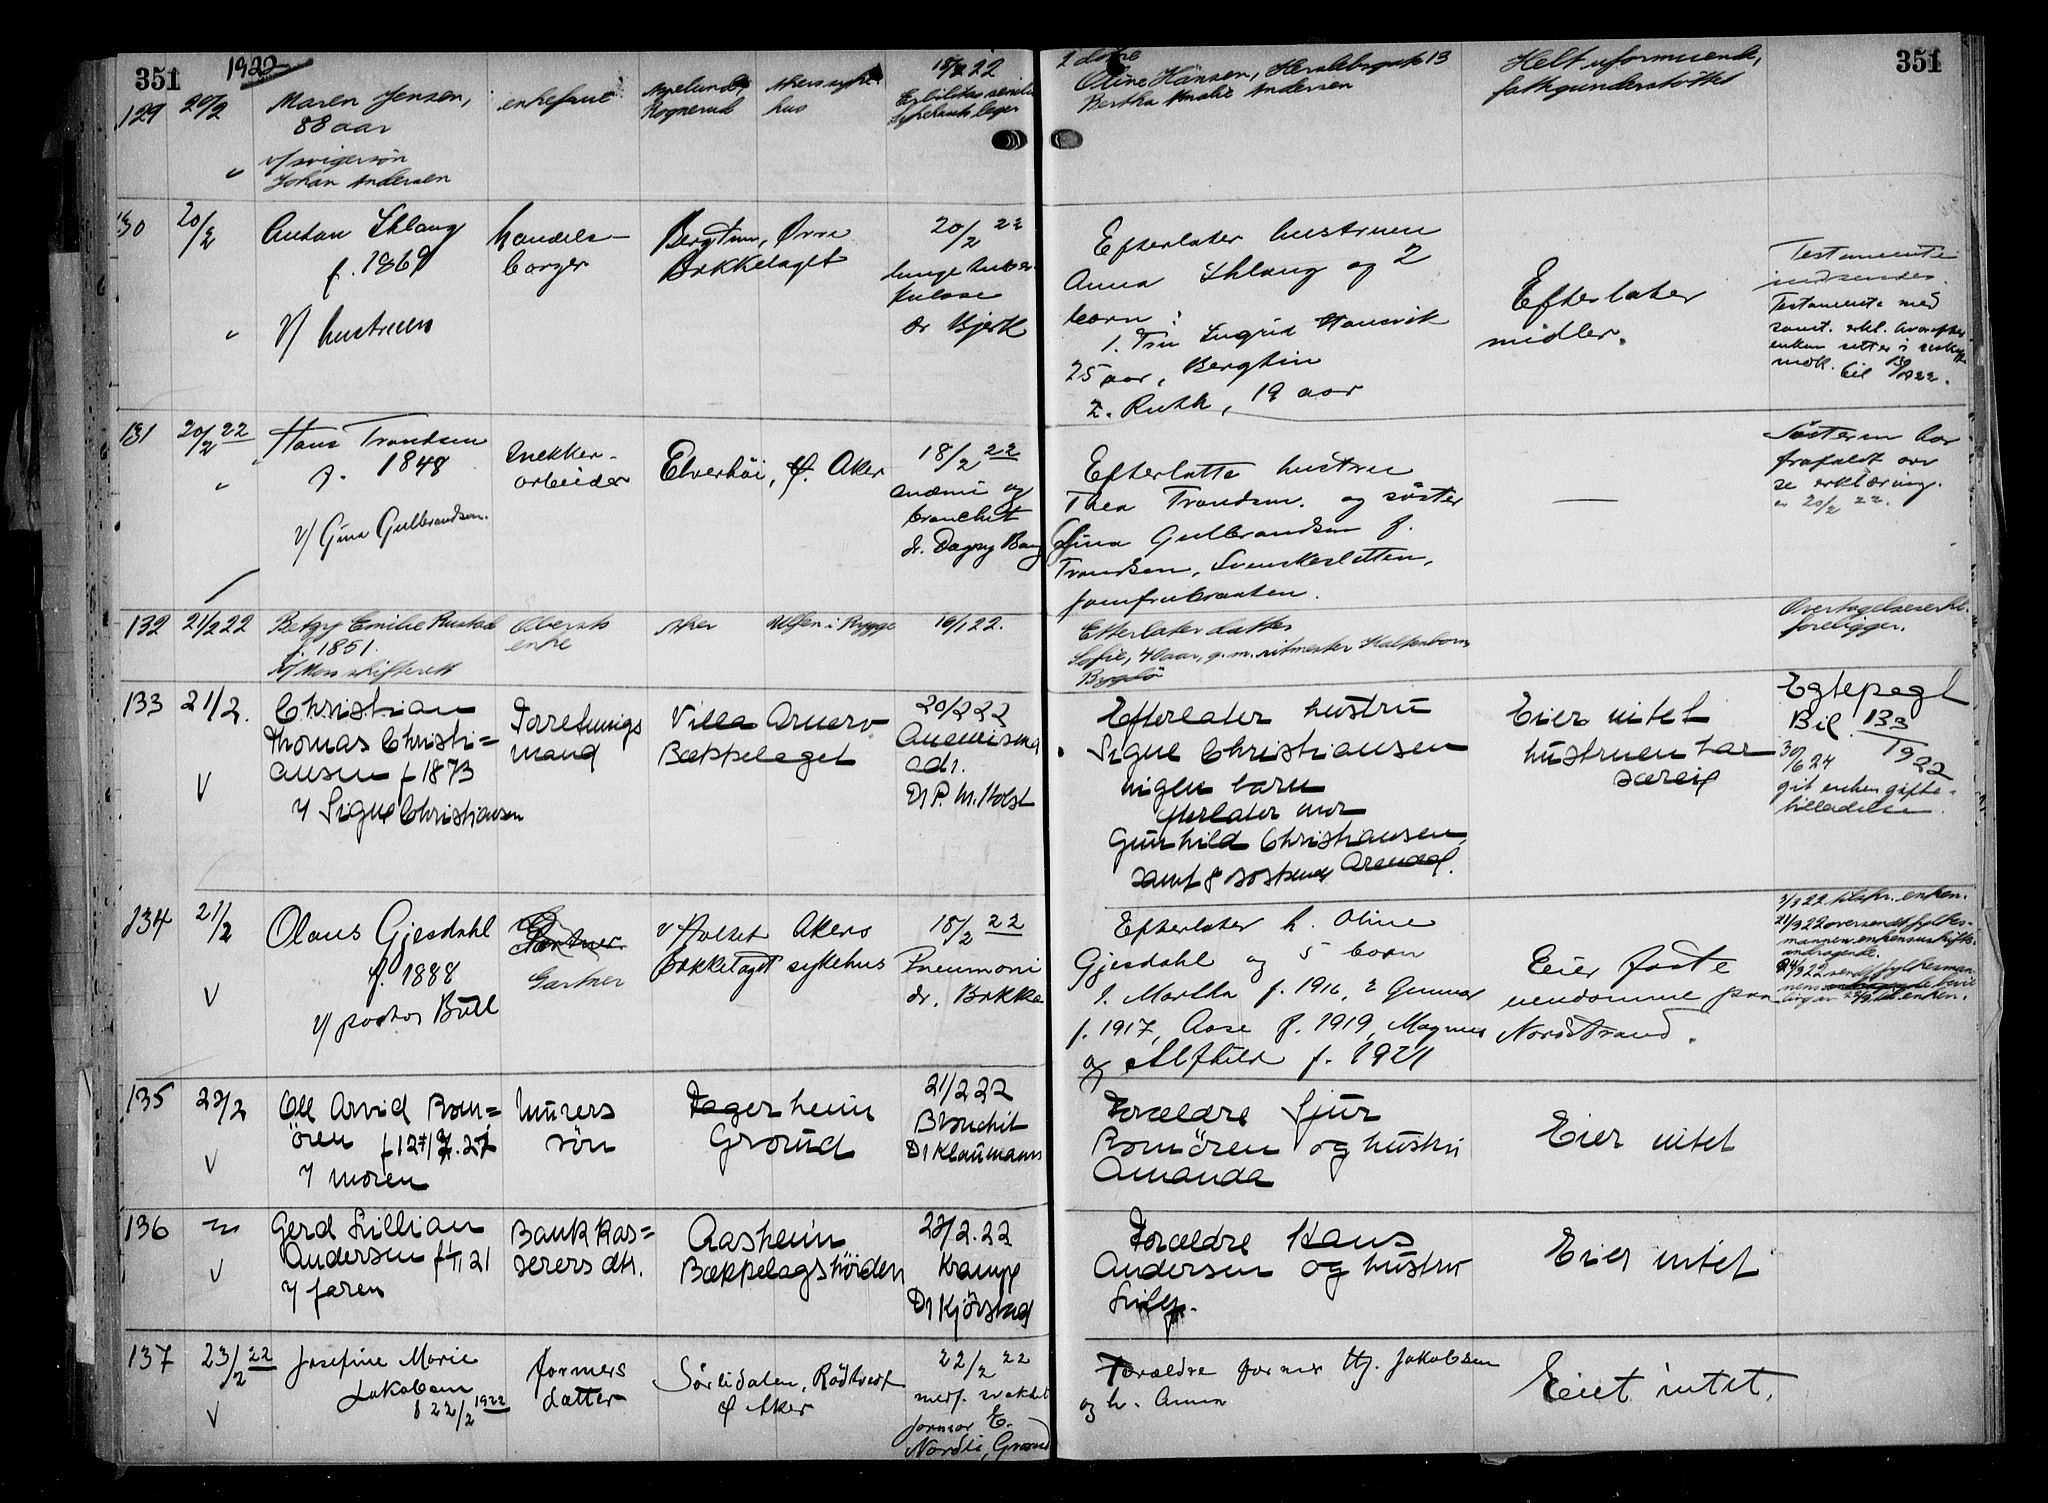 351
1922
351
129
20/2
Maren Jensen,
88 aar
v/ svigersøn
Johan Andersen
enkefrue
Rognerud
Akers syke-
hus
18/2 22
2 døtre
Oline Hansen, 13
Bertha Andersen
Helt uformuende,
130
20/2
Anton
f. 1869
v/ hustruen
handels-
borger
Bergtun, Øvre
Bækkelaget
20/2 22
lungetuber-
kulose
dr Bjerk
Efterlater hustruen
Anna og 2
barn:
1. Fru Ingrid
25 aar, Bergtun
2. Ruth, 19 aar
Efterlater
midler.
Testamente
indsendes.
Testamente med
samt. erkl. hvorefter
enken sitter i uskifte
131
20/2 22
Hans Trondsen
f. 1848
v/ Gina Gulbrandsen.
snekker-
arbeider
Elverhöi, Ø. Aker
18/2 22
anæmi og
bronchit
dr. Dagny Bang
Efterlatte hustru
Thea Trondsen. og søster
Gina Gulbrandsen f.
Trondsen, Svenskesletten,
Jomfrubraaten.
—
Søsteren har
frafaldt arv
se erklæring.
av 20/2 22.
132
21/2 22
Betzy Emilie Rustad
f. 1851.
v/ Moss skifterett
Obersts
enke
Aker
i Rygge
16/1 22.
Efterlater datter
Sofie, 40 aar, g. m. ritmester Kaltenborn
Bygdö
Overtagelseserkl.
foreligger.
133
21/2.
V
Christian
Thomas Christi=
ansen f 1873
v/ Signe Christiansen
Forretnings
mand
Villa
Bækkelaget
20/2 22
Dr P. M. Holst
Efterlater hustru
Signe Christiansen
ingen barn
efterlater mor
Gunhild Christiansen,
samt 8 søskende Arendal.
Eier intet
hustruen har
særeie
Egtepagt
Bil. 133
1922
30/6 24
git enken gifte-
tilladelse.
134
21/2
V
Olaus Gjesdahl
f. 1888
v/ pastor Bull
Gartner
Gartner
Bækkelaget
Akers
sykehus
18/2 22
Pneumoni
dr. Bakke
Efterlater h. Oline
Gjesdahl og 5 barn
1. Martha f. 1916, 2 Gunnar
f. 1917, Aase f. 1919, Magnus
og Alfhild f. 1921
Eier faste
eiendomme paa
Nordstrand.
135
22/2
V
Arvid Rom=
ören
v/ moren
Murers
sön
Fagerheim
Grorud
21/2 22
Bronchit
Dr Klaumann
Forældre Sjur
Romören og hustru
Amanda
Eier intet
136
V
Gerd Lillian
Andersen f
v/ faren
Bankkas=
serers dtr.
Aasheim
Bækkelagshöiden
22/2.22
Krampe
Dr Kjölstad
Forældre Hans
Andersen og hustru
Lilly.
Eier intet
137
23/2 22
V
Josefine Marie
Jakobsen
f 22/2 1922
formers
datter
Sörlidalen, Rödtvedt
Ø Aker
22/2 22
medf. svakhet
jormor E.
Nordli, Grorud
Forældre former Hj. Jakobsen
og h. Anna
Eiet intet.